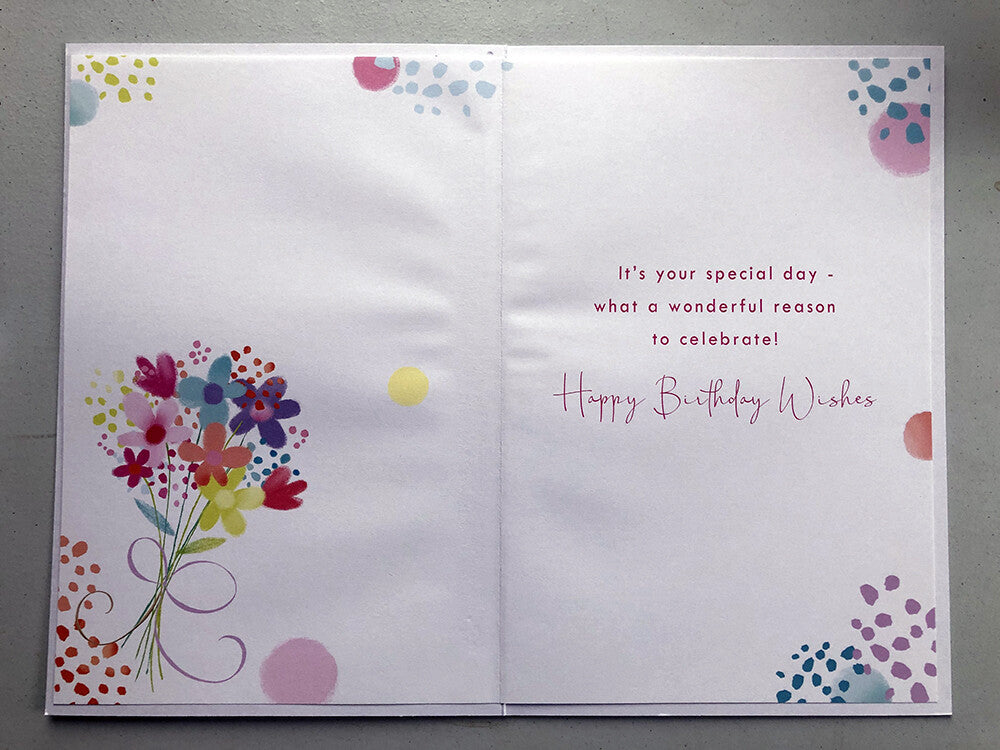 It's your special day -
what a wonderful reason
to celebrate!
Happy Birthday Wishes